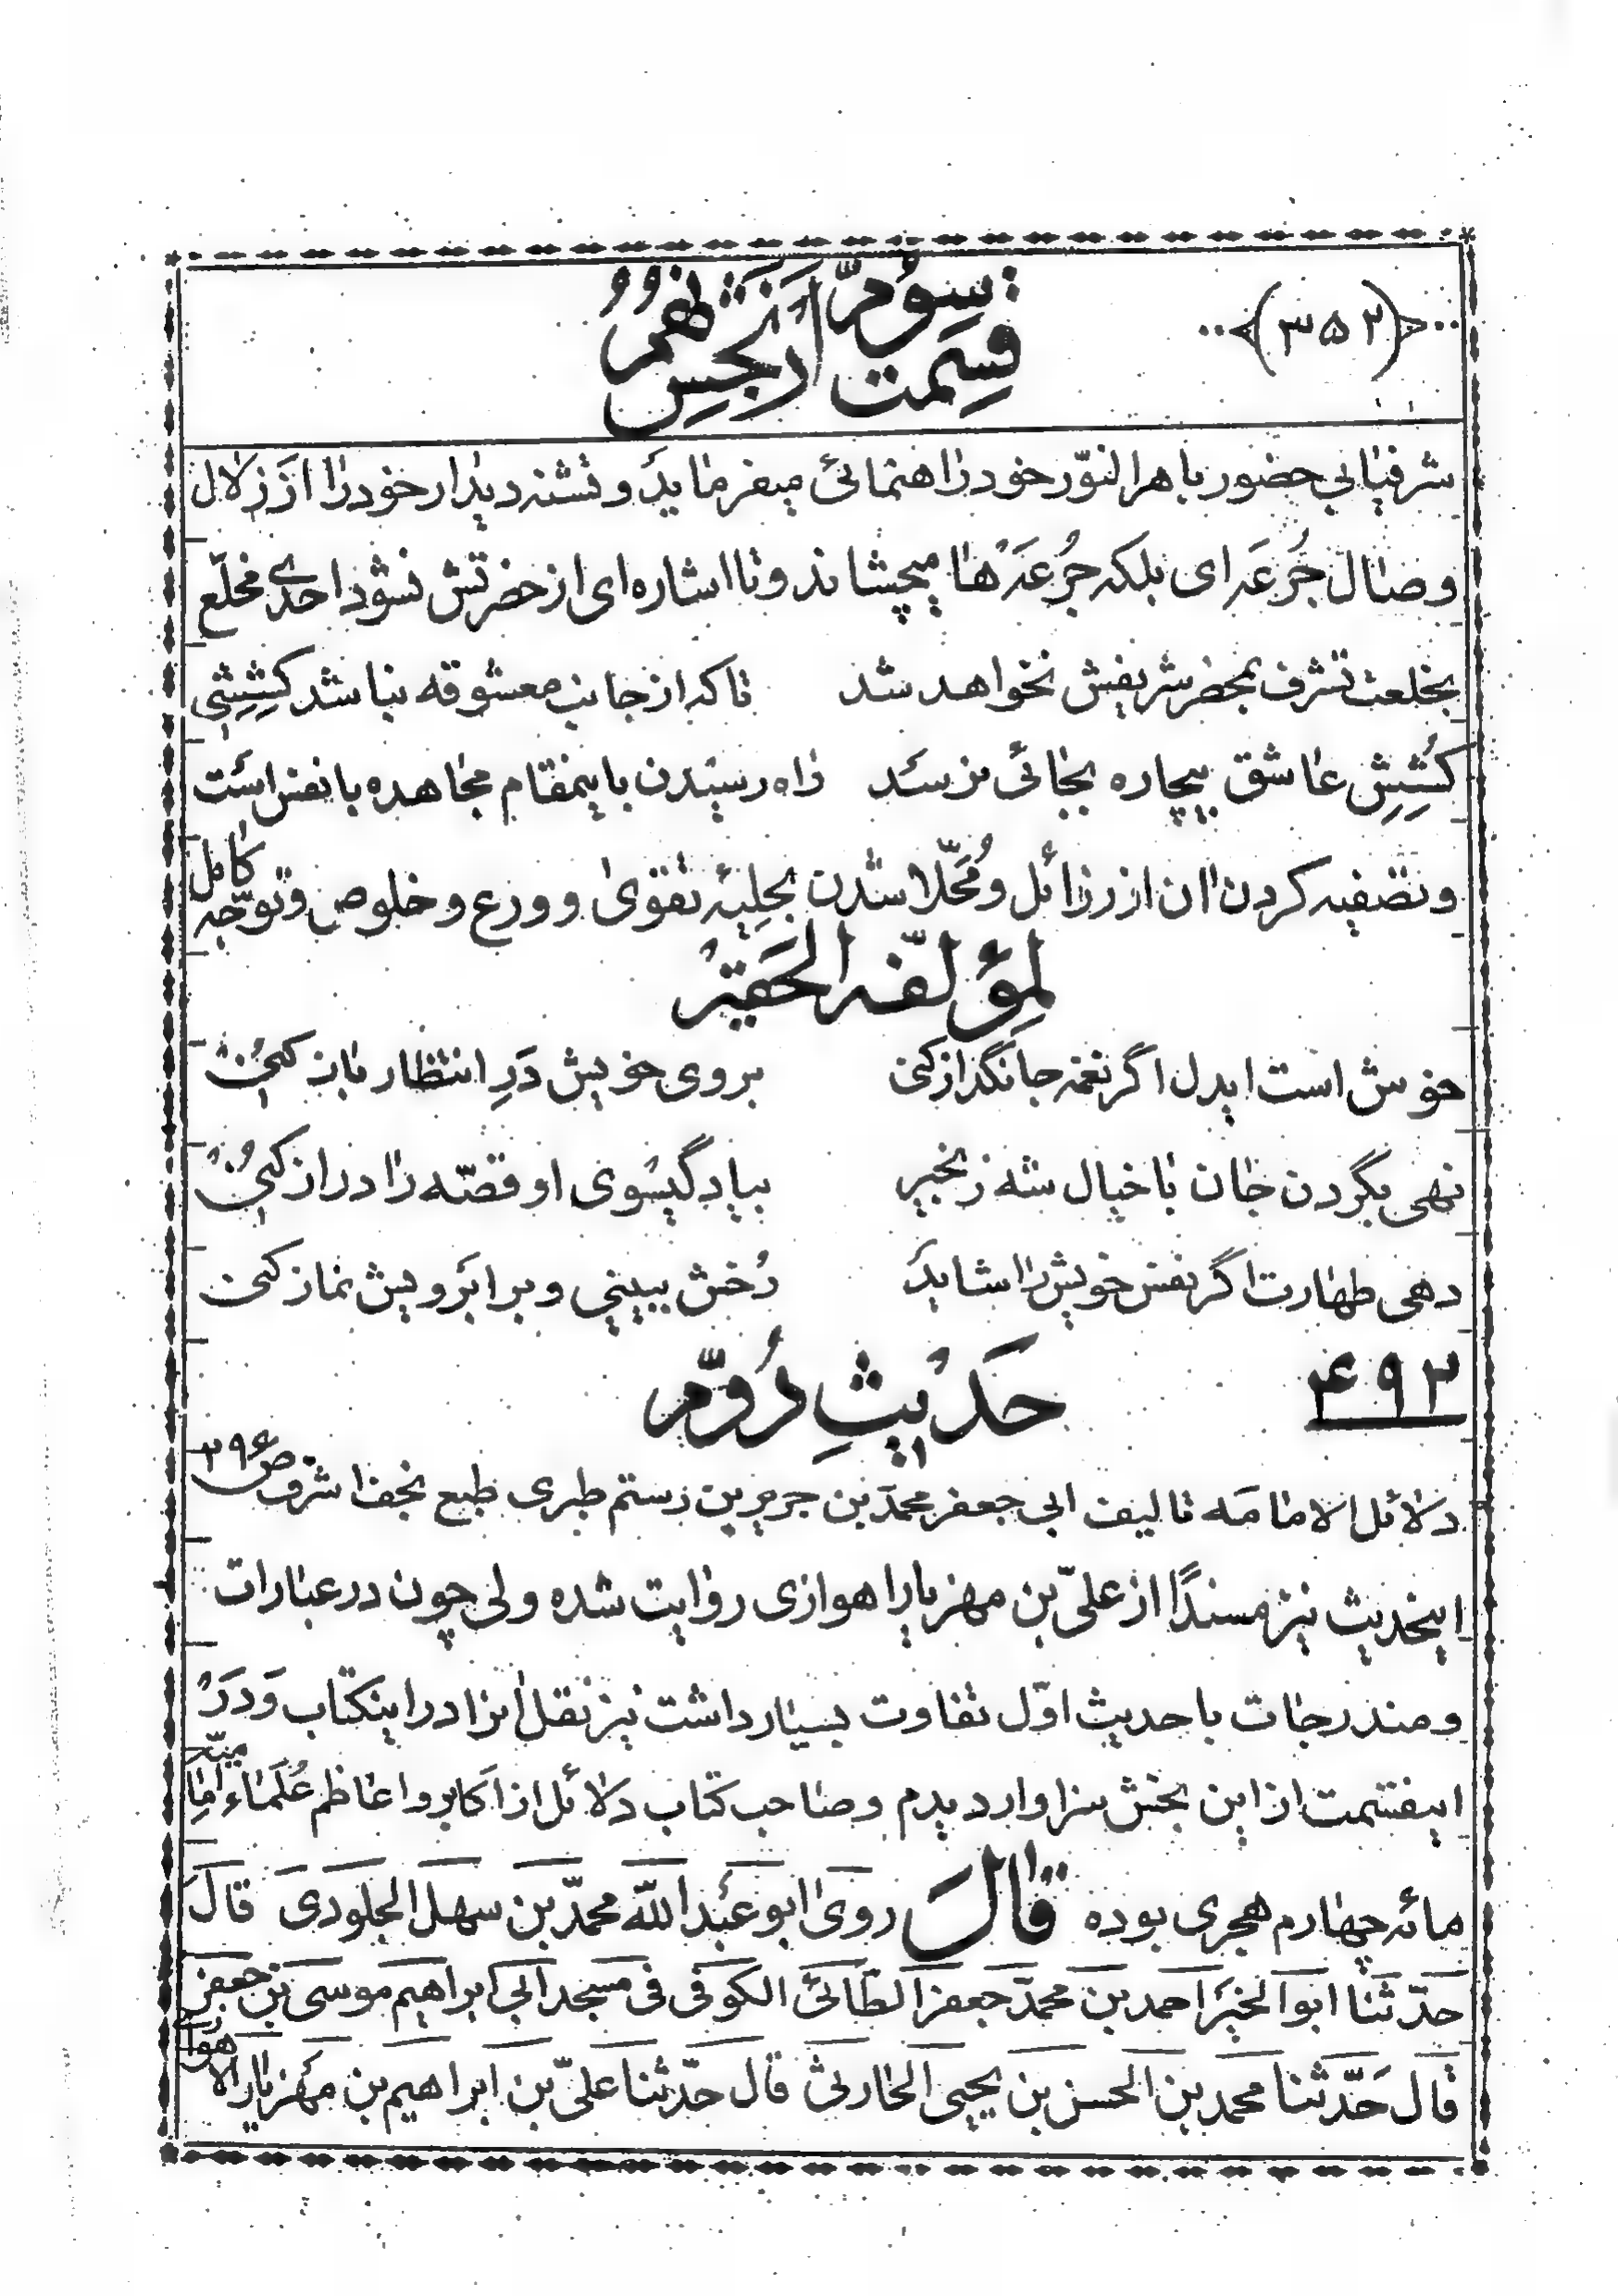 ﴿۳۵۲﴾
قسمت سوّم از بخش نهم
شرفیابی حضور باهر النّور خود راهنمائی میفرماید و تشنه دیدار خود را از زلال
وصال جُرعَه ای بلکه جُرعَه‌ها میچشاند و تا اشاره ای از حضرتش نشود احدی مخلّع
بخلعت تشرف بمحضر شریفش نخواهد شد تا که از جانب معشوقه نباشد کِشِشی
کُشِشِ عاشق بیچاره بجائی نرسد راه رسیدن باینمقام مجاهده با نفس است
و تصفیه کردن ان از رزائل و مُحَلّا شدن بحلِیۀ تقوی و ورع و خلوص و توجّه کامل
لمؤلّفه الحَقیر
خوش است ایدل اگر نغمه جانگداز کنی بروی خویش دَرِ انتظار باز کنی
نهی بگردن جان با خیال شه زنجیر بیاد گیسوی او قصّه را دراز کنی
دهی طهارت اگر نفس خویش را شاید رُخش ببینی و بر ابرَویش نماز کنی
۴۹۲
حَدیثِ دُوّم
دلائل الامامَه تالیف ابی جعفر محمّد بن جریر بن رستم طبری طبع نجف اشرف ص ۲۹۶
اینحدیث نیز مسندًا از علیّ بن مهزیار اهوازی روایت شده ولی چون در عبارات
و مندرجات با حدیث اوّل تفاوت بسیار داشت نیز نقل انرا در اینکتاب وَ دَر
اینقسمت از این بخش سزاوار دیدم و صاحب کتاب دلائل از اکابر و اعاظم عُلَماء اِمامیّه
مائه چهارم هجری بوده قالَ رویٰ ابو عَبدالله محمّد بن سهل الجلودی قالَ
حدّثنا ابو الخیر احمد بن محمّد جعفر الطّائیّ الکوفی فی مسجد ابی ابراهیم موسی بن جعفر
قال حَدّثنا محمد بن الحسن بن یحیی الحارثیّ قال حدّثنا علیّ بن ابراهیم بن مهزیار الاهوازی